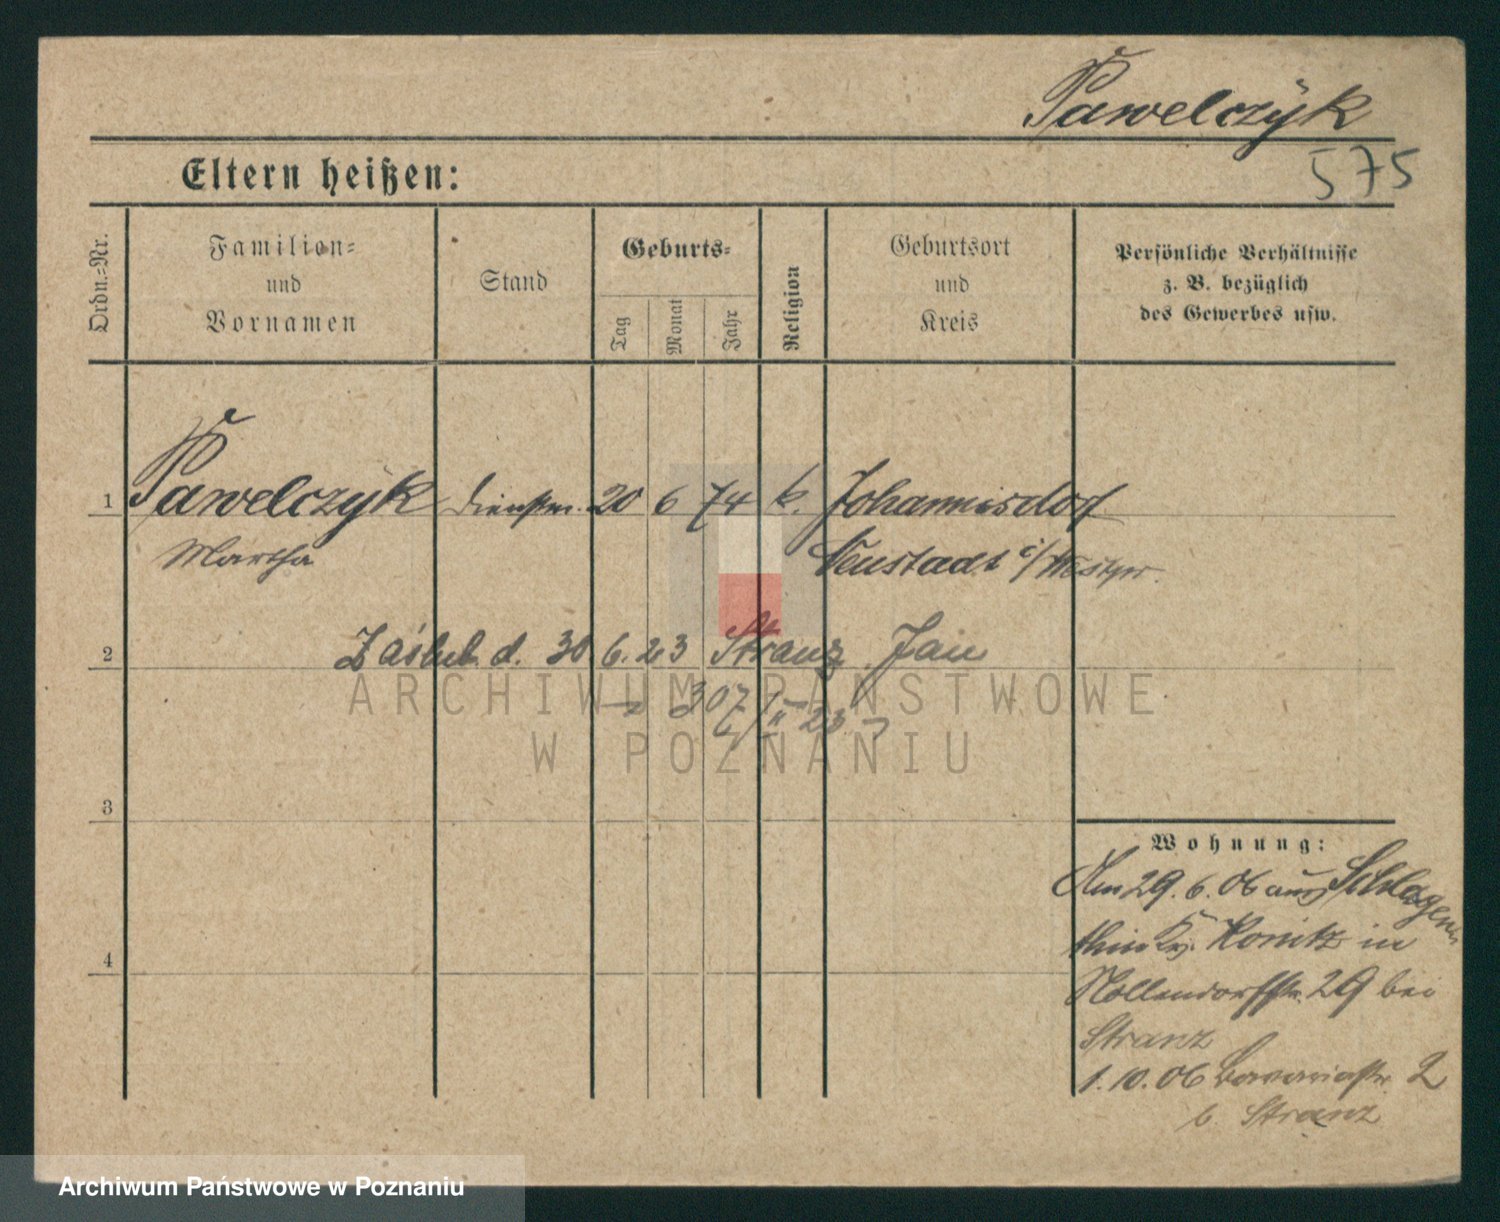 Pawelczyk
575
Eltern heißen:
Ordn.-Nr.
Familien-
und
Vornamen
Stand
Geburts-
Tag
Monat
Jahr
Religion
Geburtsort
und
Kreis
Persönliche Verhältnisse
z. B. bezüglich
des Gewerbes usw.
1 Pawelczyk Dienstm. 20 6 74 k. Johannisdorf
Martha Neustadt i/Westpr.
2 Zaślub. d. 30 6. 23 Stranz Jan
307
23
3
4
Wohnung:
Am 29. 6. 06 aus Schlagen
thin Kr. Konitz in
Nollendorfstr. 29 bei
Stranz
1. 10. 06 Bavariastr. 2
b. Stranz
ARCHIWUM PAŃSTWOWE
W POZNANIU
Archiwum Państwowe w Poznaniu